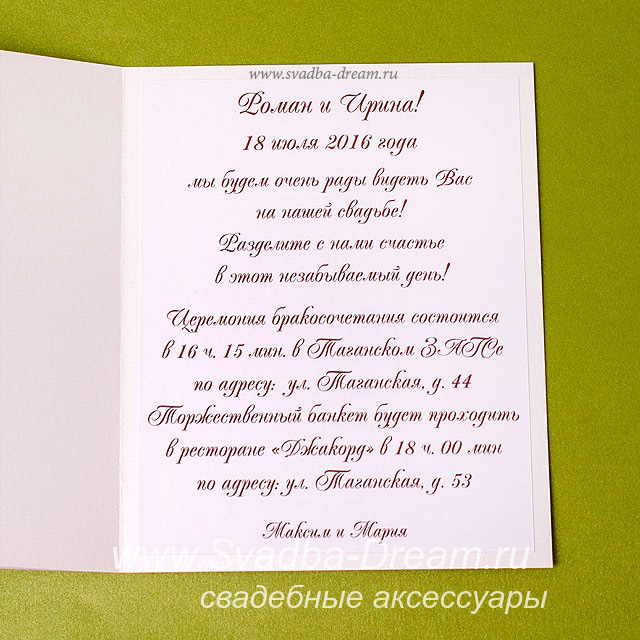 www.svadba-dream.ru
Роман и Ирина!
18 июля 2016 года
мы будем очень рады видеть Вас
на нашей свадьбе!
Разделите с нами счастье
в этот незабываемый день!
Церемония бракосочетания состоится
в 16 ч. 15 мин. в Таганском ЗАГСе
по адресу: ул. Таганская, д. 44
Торжественный банкет будет проходить
в ресторане «Джакорд» в 18 ч. 00 мин
по адресу: ул. Таганская, д. 53
Максим и Мария
www.Svadba-Dream.ru
свадебные аксессуары